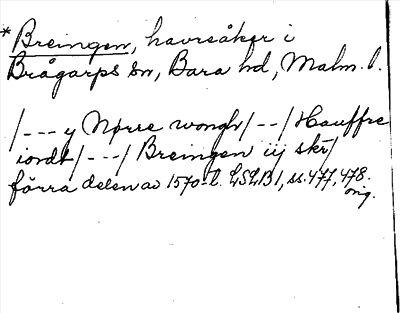 * Breingen, havreåker i
Brågarps sn, Bara hd, Malm. l.
/---y Nørre wongh/--/Hauffre
iordt/---/ Breingen iij skr/
förra delen av 1570-t. LSLB1, ss. 477, 478.
orig.